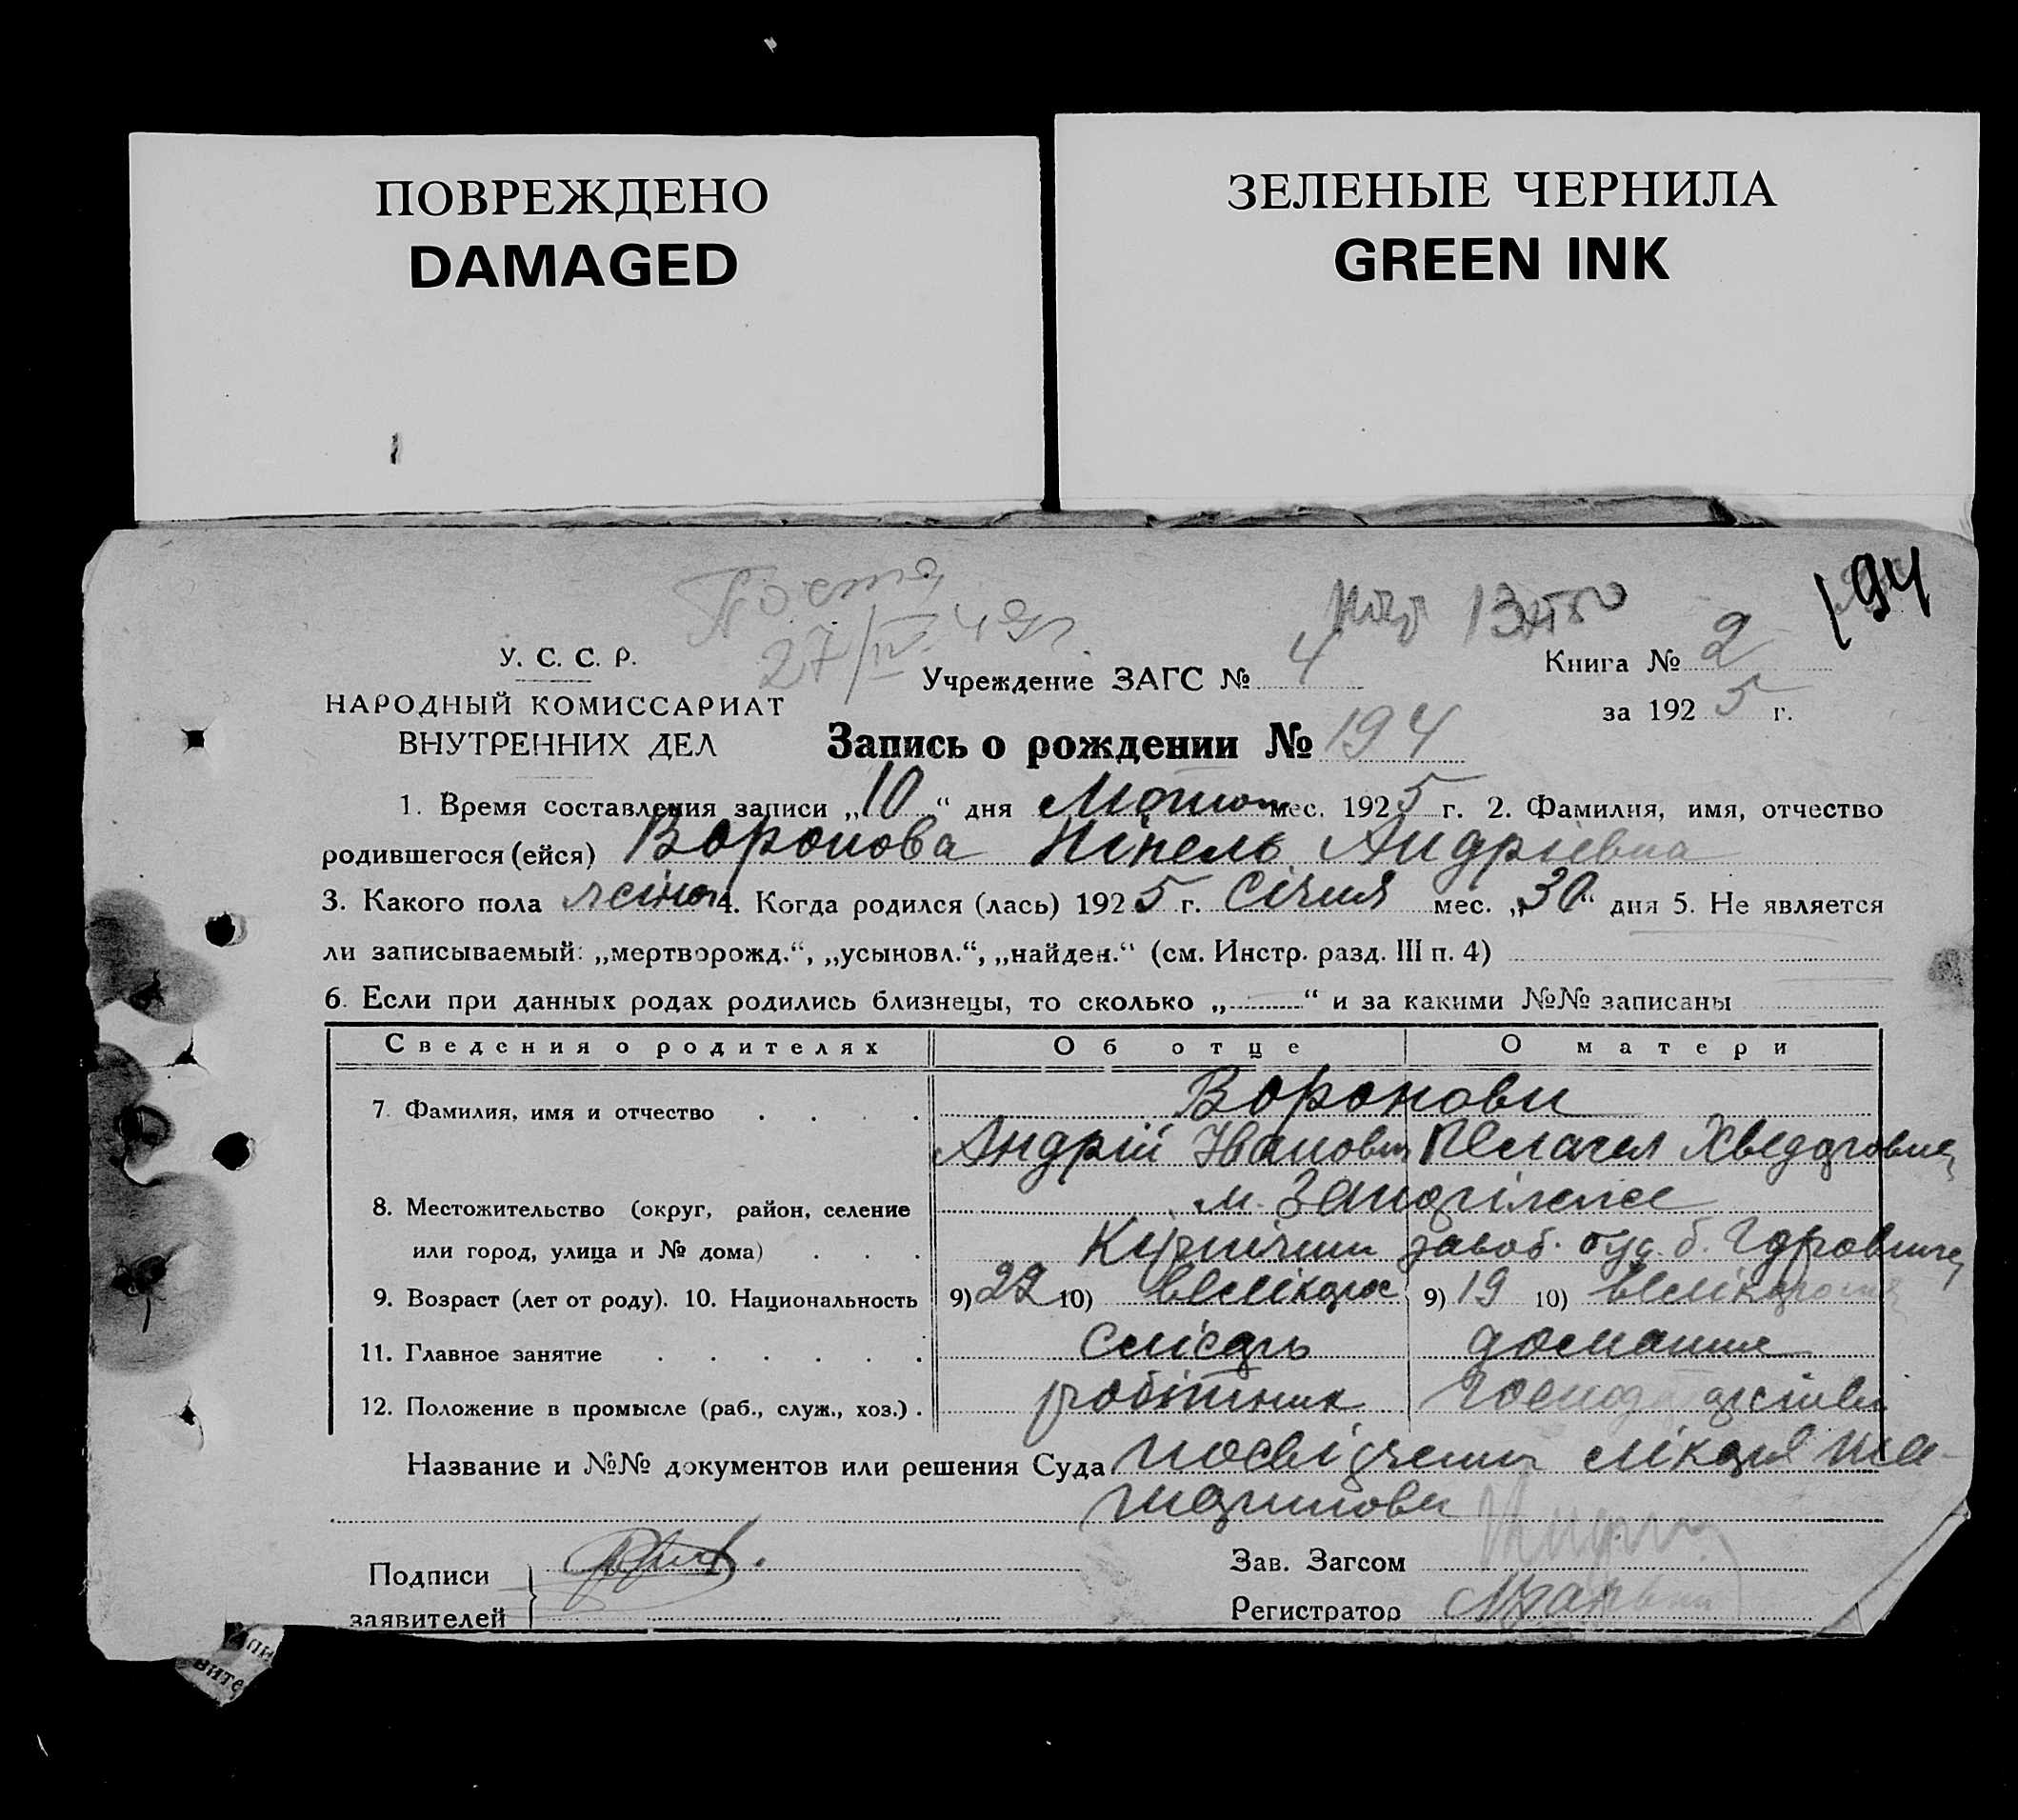 ПОВРЕЖДЕНО
DAMAGED
ЗЕЛЕНЫЕ ЧЕРНИЛА
GREEN INK
194
27/IV 49р.
У. С. С. Р.
НАРОДНЫЙ КОМИССАРИАТ
ВНУТРЕННИХ ДЕЛ
Учреждение ЗАГС № 4
Книга № 2
за 1925 г.
Запись о рождении № 194
1. Время составления записи „10“ дня Лютого мес. 1925 г. 2. Фамилия, имя, отчество
родившегося (ейся) Воронова Нінель Андріевна
3. Какого пола жіноч 4. Когда родился (лась) 1925 г. Січня мес. „30“ дня 5. Не является
ли записываемый: „мертворожд.“, „усыновл.“, „найден.“ (см. Инстр. разд. III п. 4)
6. Если при данных родах родились близнецы, то сколько „ “ и за какими №№ записаны
Сведения о родителях Об отце О матери
7. Фамилия, имя и отчество Воронови
Андрій Іванович Пелагея Хведоровна
8. Местожительство (округ, район, селение
или город, улица и № дома)
м. Запоріжже
Кірпічний завод. буд. б.
9. Возраст (лет от роду). 10. Национальность 9) 22 10) велікорос 9) 19 10) велікоросія
11. Главное занятие слюсарь домашнє
12. Положение в промысле (раб., служ., хоз.) робітник господарство
Название и №№ документов или решения Суда посвідчення лікаря
Подписи
заявителей
Зав. Загсом
Регистратор